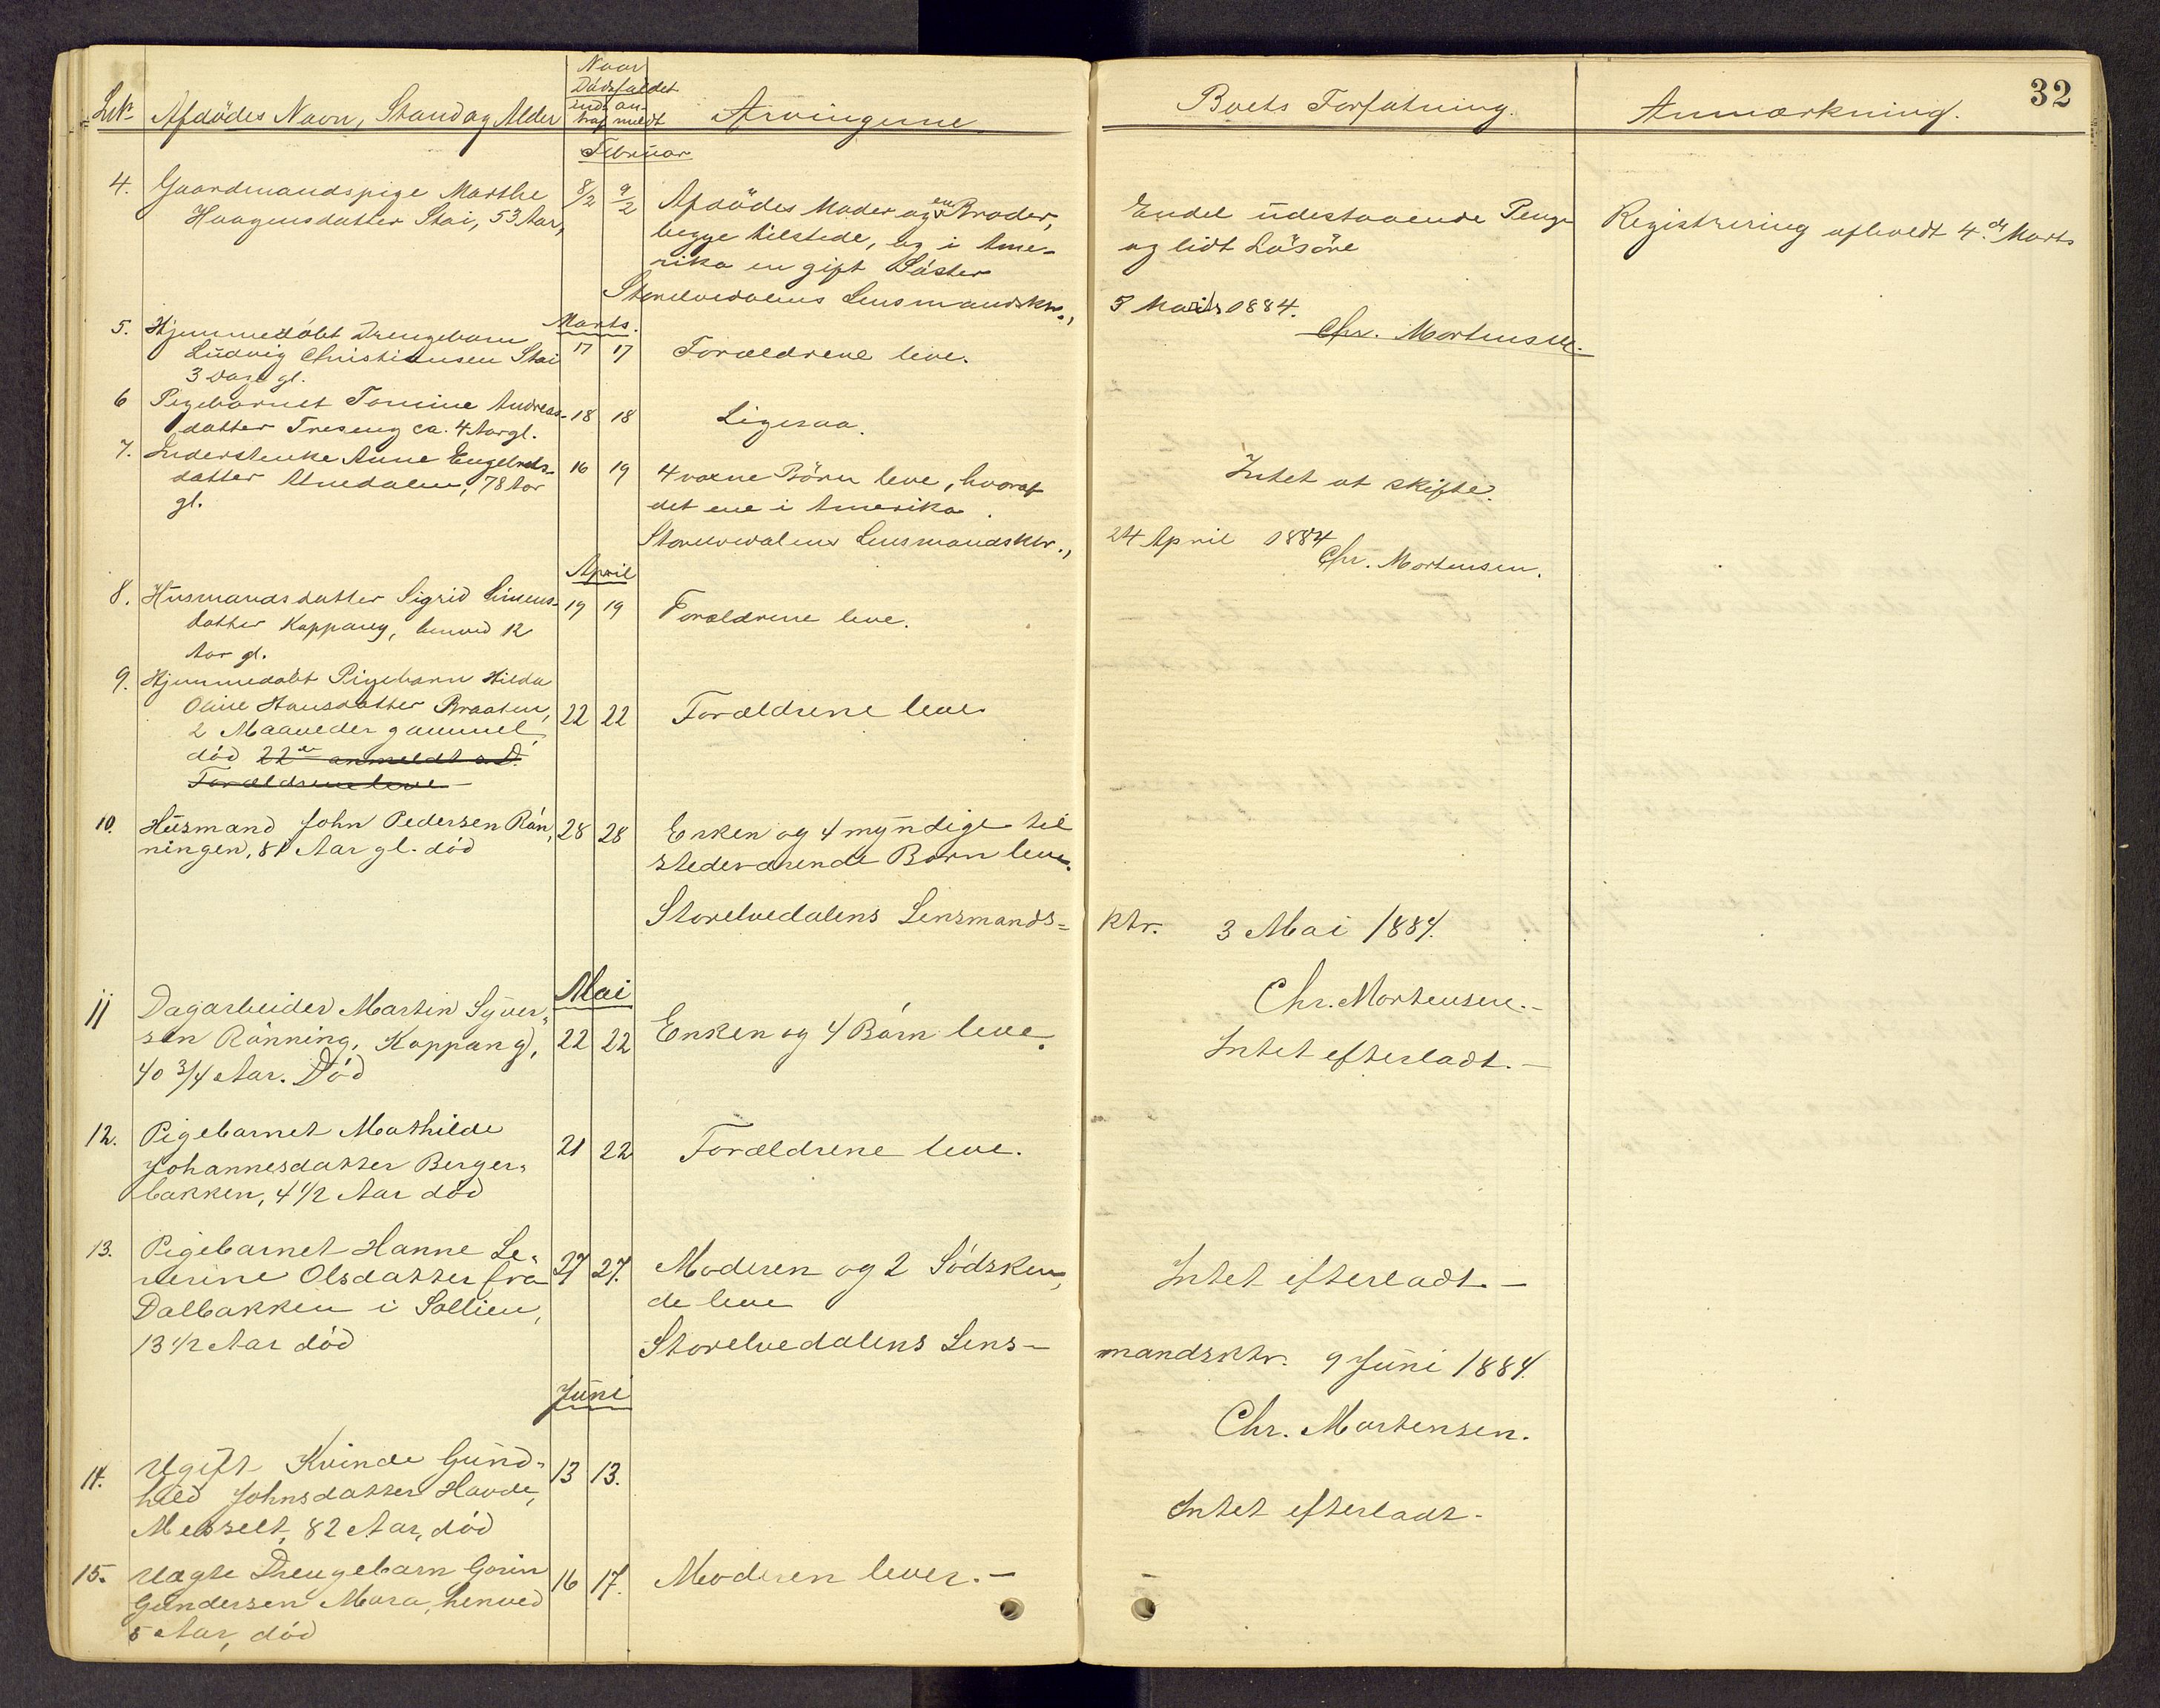 32
Naar
Dödsfaldet
LN. Afdödes Navn, Stand og Alder indtraf anmeldt Arvingerne Boets Forfatning. Anmærkning.
Februar
4. Gaardmandspige Marthe 8/2 9/2 Afdödes Moder og en Broder, Endel udestaaende Penge Registrering afholdt 4.de Marts
Haagensdatter Stai, 53 Aar, begge tilstede, og i Ame- og lidt Lösöre
rika en gift Söster
Storelvedalens Lensmandsktr., 3 Marts 1884.
Chr. Mortensen.
Marts.
5. Hjemmedöbt Drengebarn 17 17 Forældrene leve.
Ludvig Christiansen Stai
3 Dage gl.
6 Pigebarnet Tomine Andreas- 18 18 Ligesaa.
datter Treseng ca. 4 Aar gl.
7. Inderstenke Anne Engebrets- 16 19 4 voxne Börn leve, hvoraf Intet at skifte.
datter Atnedalen, 78 Aar det ene i Amerika.
gl.
Storelvedalens Lensmandsktr., 24 April 1884
Chr. Mortensen.
April
8. Husmandsdatter Sigrid Simens- 19 19 Forældrene leve.
datter Koppang, henved 12
Aar gl.
9. Hjemmedöbt Pigebarn Hilda
Oline Hansdatter Braaten, 22 22 Forældrene leve
2 Maaneder gammel,
död 22de anmeldt s. D.
Forældrene leve -
10. Husmand John Pedersen Rön, 28 28 Enken og 4 myndige til
ningen, 81 Aar gl. död stedeværende Børn leve.
Storelvedalens Lensmands= ktr. 3 Mai 1884.
Chr. Mortensen.-
Mai
11 Dagarbeider Martin Syver- 22 22 Enken og 4 Børn leve. Intet efterladt. -
sen Rönning, Koppang,
40 3/4 Aar. Död
12. Pigebarnet Mathilde 21 22 Forældrene leve.
Johannesdatter Berger-
bakken, 4 1/2 Aar död
13. Pigebarnet Hanne Le- 27 27. Moderen og 2 Södsken, Intet efterladt. -
nerine Olsdatter fra de leve
Dalbakken i Sollien,
13 1/2 Aar död Storelvedalens Lens- mandsktr. 9 Juni 1884.
Chr. Mortensen.
Juni
14. Ugift Kvinde Gund- 13 13. Intet efterladt.
hild Johnsdatter Hovde,
Messelt, 82 Aar, död
15. Uægte Drengebarn Gorin 16 17. Moderen lever. - -
Gundersen Mora, henved
5 Aar, död